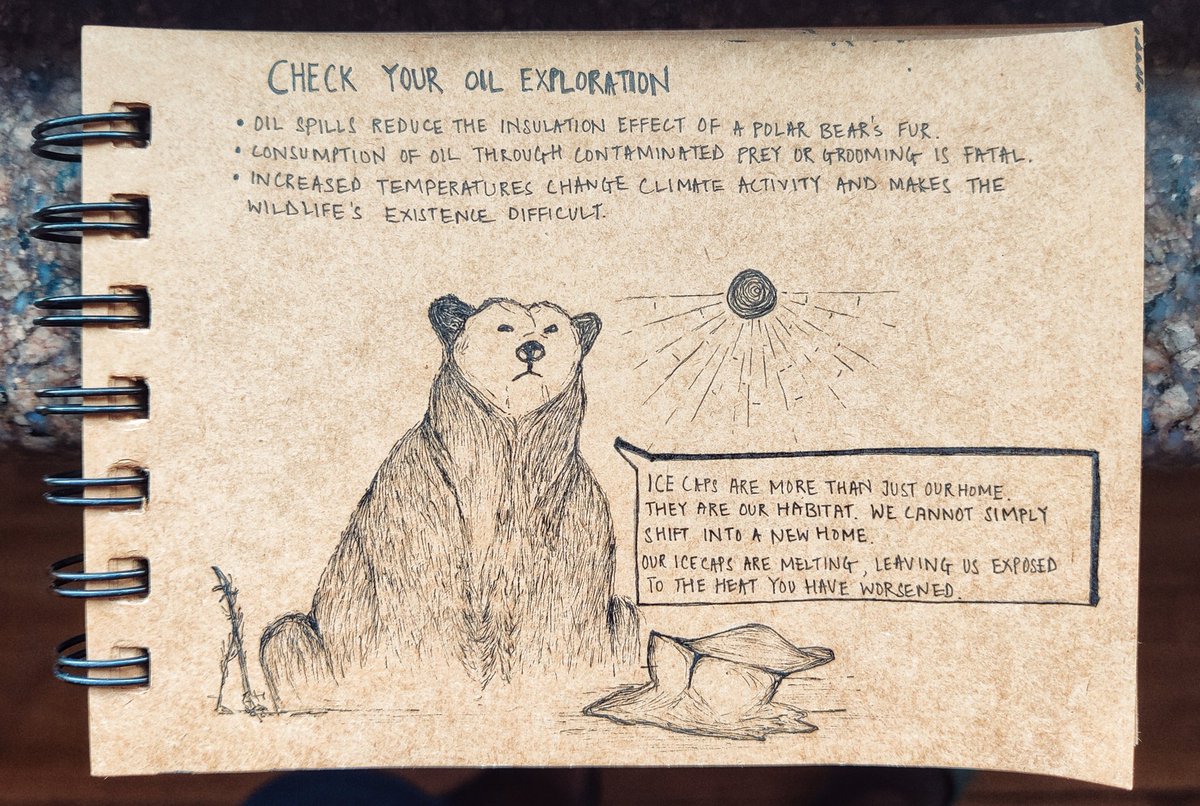 CHECK YOUR OIL EXPLORATION
• OIL SPILLS REDUCE THE INSULATION EFFECT OF A POLAR BEAR'S FUR.
• CONSUMPTION OF OIL THROUGH CONTAMINATED PREY OR GROOMING IS FATAL.
• INCREASED TEMPERATURES CHANGE CLIMATE ACTIVITY AND MAKES THE
WILDLIFE'S EXISTENCE DIFFICULT.
ICE CAPS ARE MORE THAN JUST OUR HOME.
THEY ARE OUR HABITAT. WE CANNOT SIMPLY
SHIFT INTO A NEW HOME.
OUR ICECAPS ARE MELTING, LEAVING US EXPOSED
TO THE HEAT YOU HAVE WORSENED.